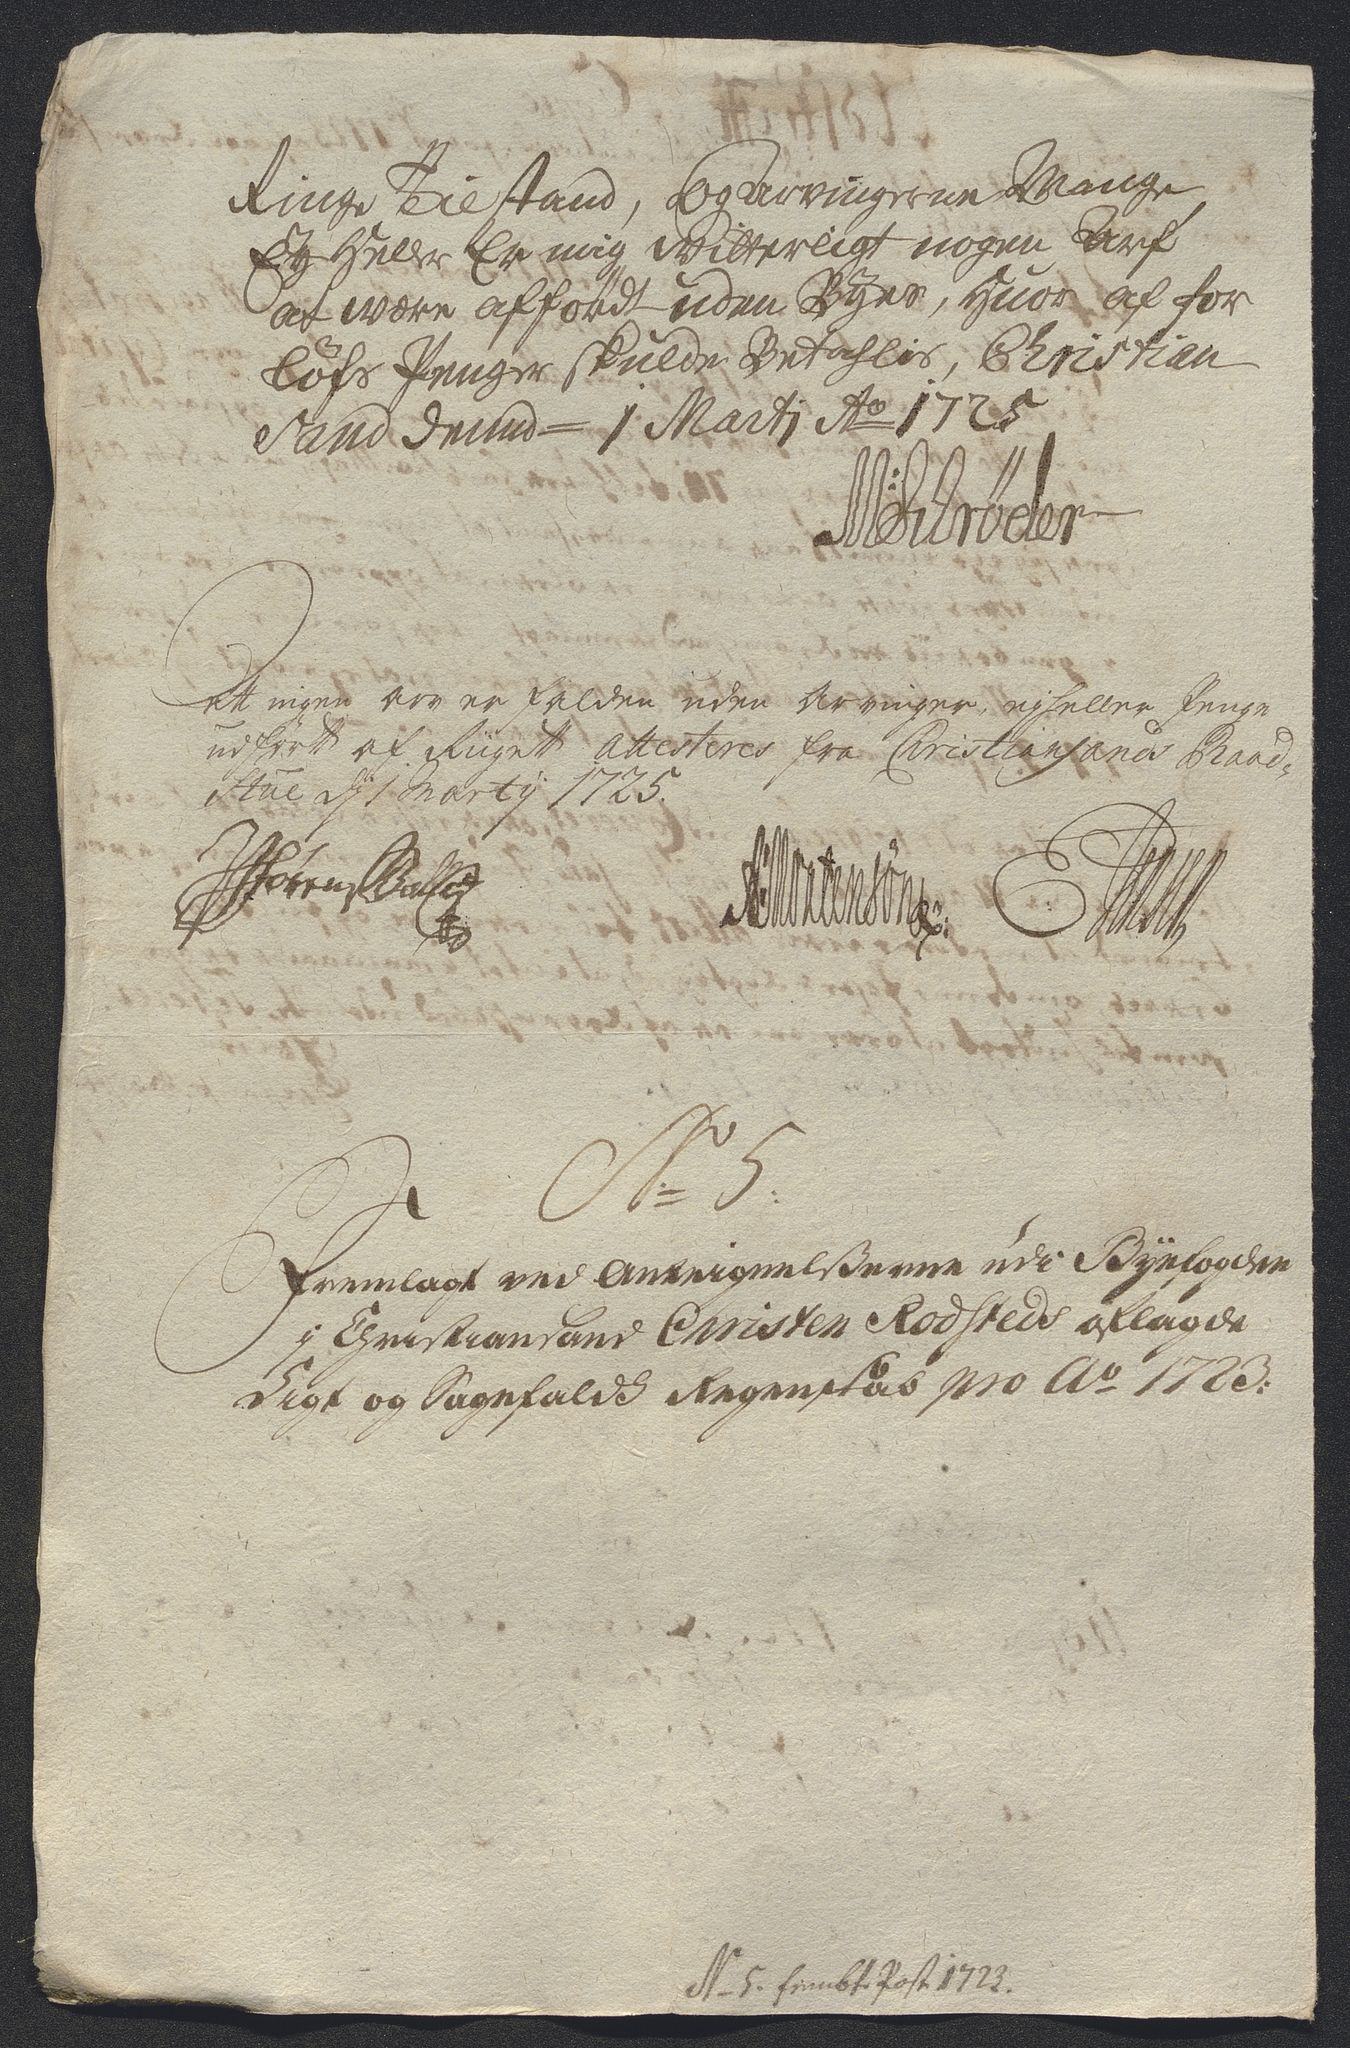 Ringe Tilstand, og Arvingerne Mange
Ey Heller Er mig Witterligt nogen Arf
at være affördt uden Byes, Huor af for
löfs Penger skulde Betahlis, Christian
sand dennd 1 Martj Ao 1725
M: Schröder
att ingen arv er falden uden Arvinger, ej heller Penge
udfört af Riiget Attesteres fra Christiansands Raad,
stue d 1 Martij 1725.
Sörens
A: Mortensön
No 5:
Fremlagt ved Anteignelsserne udi Byefogden
i Christiansand Christen Rodsteds aflagde
Sigt og Sagefalds Regenskas pro Ao 1723:
N 5. Post 1723.